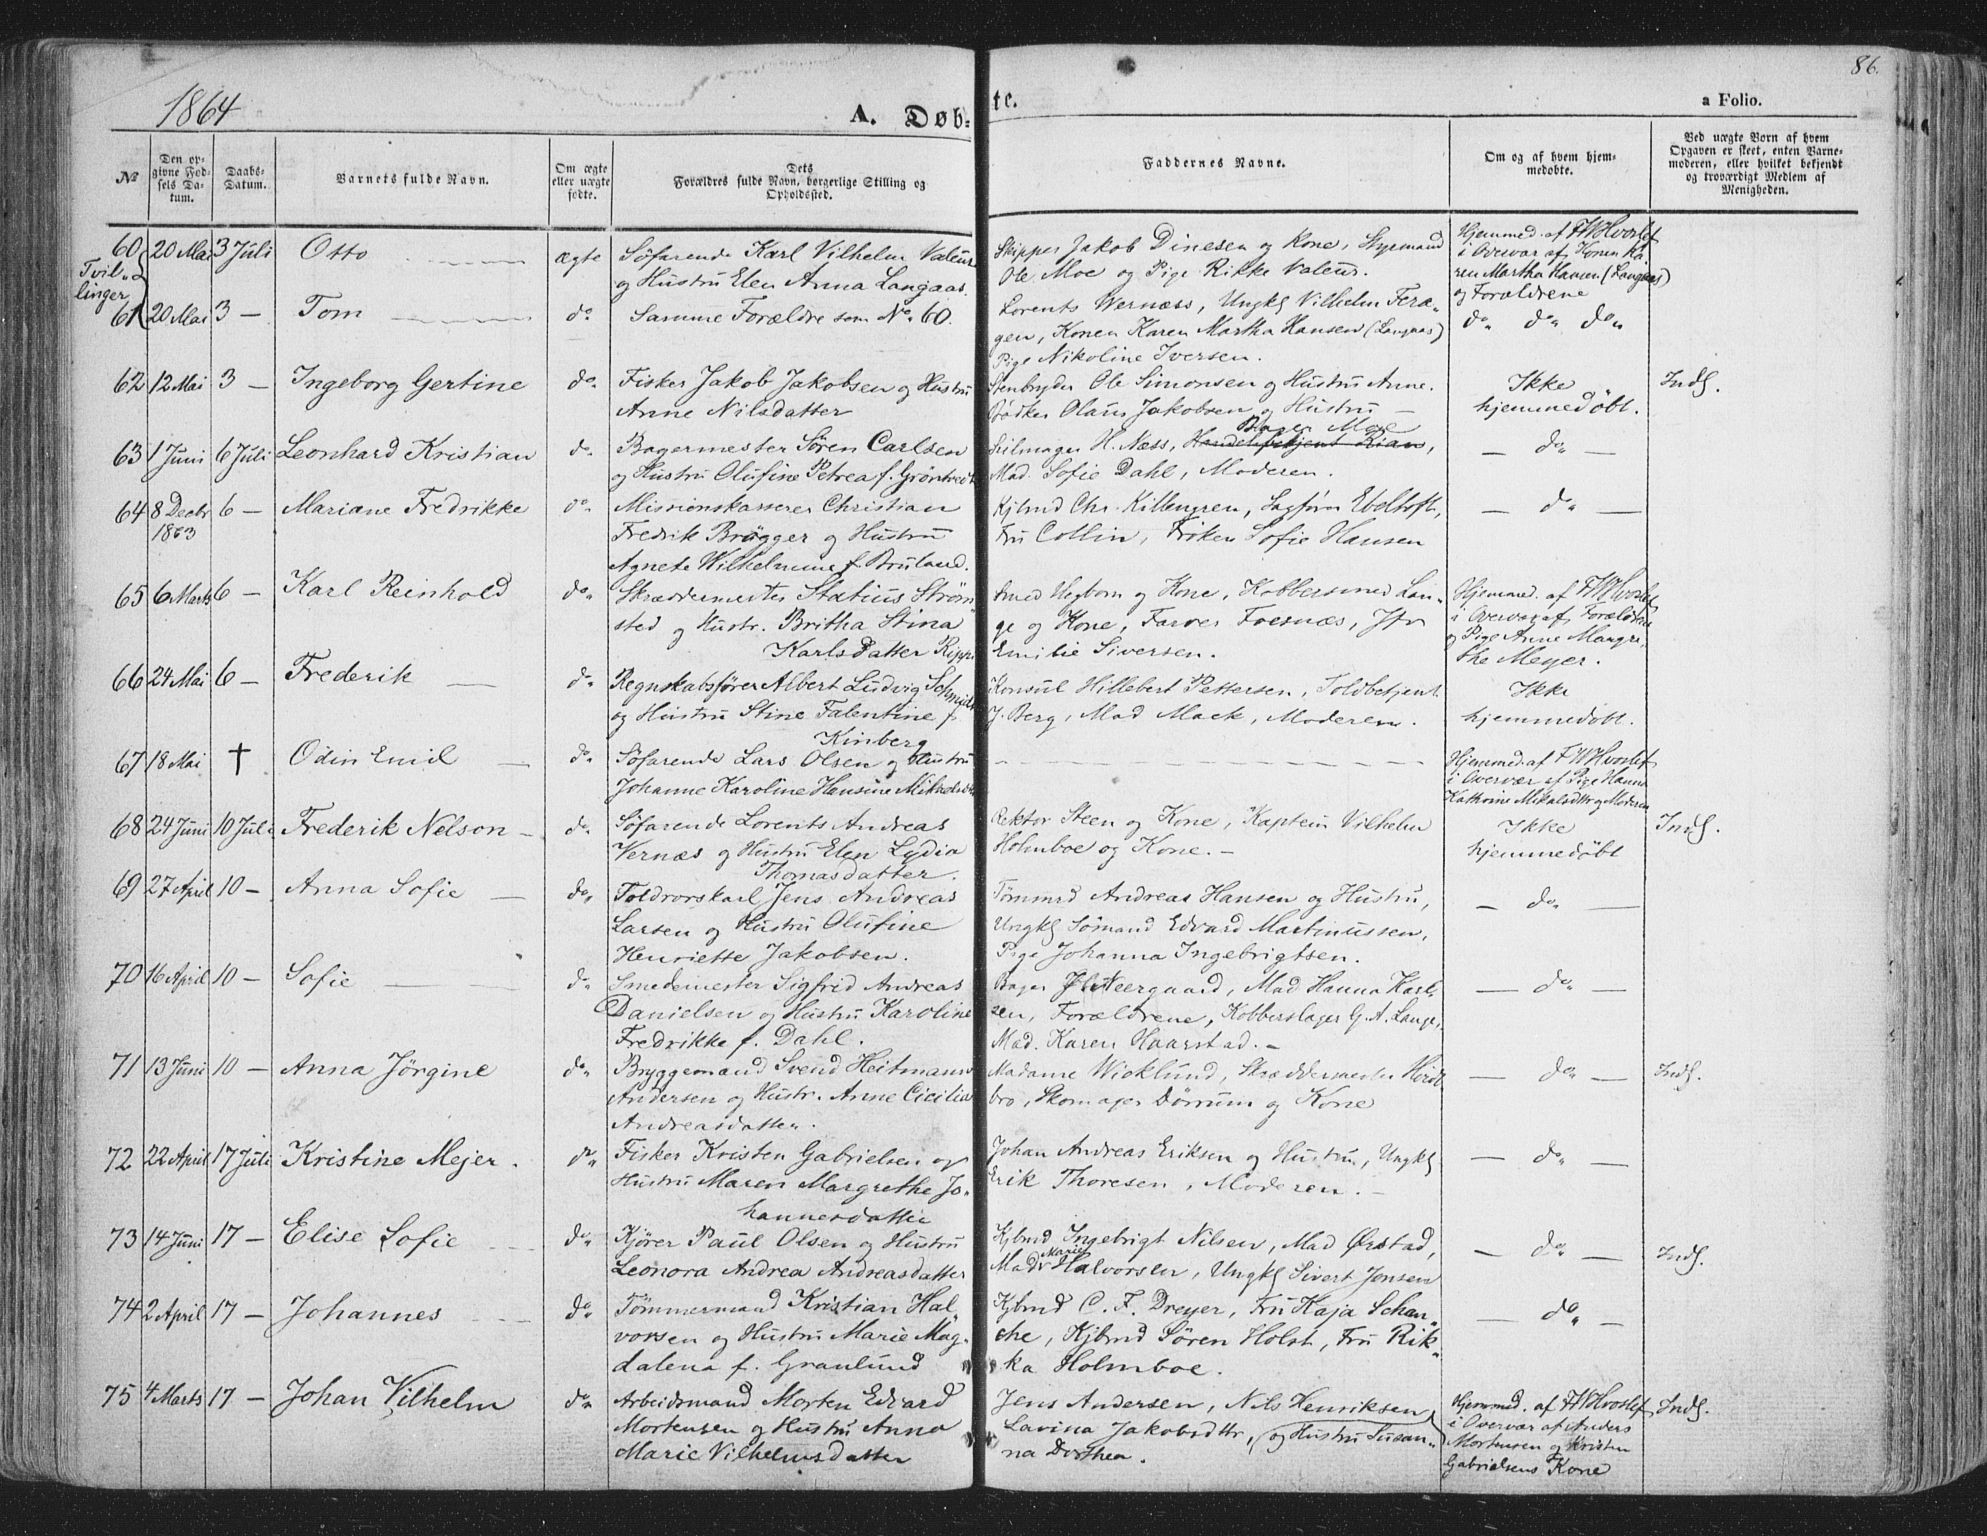 86.
1864
A. Døb-
te.
a Folio.
No
Den op-
givne Fød-
sels Da-
tum.
Daabs-
Datum.
Barnets fulde Navn.
Om ægte
eller uægte
fødte.
Dets
Forældres fulde Navn, borgerlige Stilling og
Opholdssted.
Faddernes Navne.
Om og af hvem hjem-
medøbte.
Ved uægte Børn af hvem
Opgaven er skeet, enten Barne-
moderen, eller hvilket bekjendt
og troværdigt Medlem af
Menigheden.
60 20 Mai 3 Juli Otto ægte Søfarende Karl Vilhelm Valeur
og Hustru Elen Anna Langaas.
Skipper Jakob Dinesen og Kone, Styrmand
Ole Moe og Pige Rikke Valeur.
Hjemmed. af FWHvoslef
i Overvær af Konen Ka
ren Martha Hansen (Langaas)
og Forældrene
Tvil-
linger
61 20 Mai 3 — Tom do Samme Forældre som No 60.
Lorents Wernæss, Ungkl Vilhelm Fera-
gen, Konen Karen Martha Hansen (Langaas)
Pige Nikoline Iversen.
do do do
62 12 Mai 3 — Ingeborg Gertine do Fisker Jakob Jakobsen og Hustru
Anne Nilsdatter
Stenbryder Ole Simonsen og Hustru Anne.
Bødker Olaus Jakobsen og Hustru —
Ikke
hjemmedøbt.
Indf.
63 1 Juni 6 Juli Leonhard Kristian do Bagermester Søren Carlsen
og Hustru Olufine Petrea f. Gröntvedt
Bager Moe
Seilmager H. Næss, Handelsbetjent Rian,
Mad. Sofie Dahl, Moderen.
— do —
64 8 Decbr 6 — Mariane Fredrikke do Missionskasserer Christian
1863
Fredrik Brügger og Hustru
Agnete Wilhelmine f. Bruland.
Kjbmd Chr. Killengren, Sagfører Ebeltoft,
Fru Collin, Frøken Sofie Hansen
— do —
65 6 Marts 6 — Karl Reinhold do Skræddermester Statius Strøm
sted og Hustr. Britha Stina
Karlsdatter Rippi
Smed Ungborn og Kone, Kobbersmed Lan-
ge og Kone, Farver Foesnæs, Jfr
Emilie Siversen.
Hjemmed. af FWHvoslef
i Overvær af Forældrene
og Pige Anne Margre-
the Meyer.
66 24 Mai 6 — Frederik — do Regnskabsfører Albert Ludvig Schmidt
og Hustru Stine Falentine f.
Kinberg
Konsul Hillebert Pettersen, Toldbetjent
J. Berg, Mad Mack, Moderen.
Ikke
hjemmedøbt.
67 18 Mai † Odin Emil — do Søfarende Lars Olsen og Hustru
Johanne Karoline Hansine Mikkelsdtr
Hjemmed. af FWHvoslef
i Overvær af Pige Hanna
Kathrine Mikalsdtr og Moderen
68 24 Juni 10 Juli Frederik Nelson — do Søfarende Lorents Andreas
Vernæs og Hustru Elen Lydia
Thomasdatter.
Rektor Steen og Kone, Kaptein Vilhelm
Holmboe og Kone. —
Ikke
hjemmedøbt
Indf.
69 27 April 10 — Anna Sofie — do Toldrorskarl Jens Andreas
Larsen og Hustru Olufine
Henriette Jakobsen.
Tømmrmd Andreas Hansen og Hustru,
Ungkl Sømand Edvard Martinussen,
Pige Johanna Ingebrigtsen.
— do —
70 16 April 10 — Sofie — do Smedemester Sigfrid Andreas
Danielsen og Hustru Karoline
Fredrikke f. Dahl.
Bager Neergaard, Mad Hanna Karl-
sen, Forældrene, Kobberslager G. A. Lange,
Mad. Karen Haarstad. —
— do —
71 13 Juni 10 — Anna Jörgine do Bryggemand Svend Heitmann
Andersen og Hustr. Anne Cicilia
Andreasdatter.
Madame Wicklund, Skræddermester Hind
bro, Skomager Dörrum og Kone
— do —
Indf.
72 22 April 17 Juli Kristine Mejer. do Fisker Kristen Gabrielsen og
Hustru Maren Margrethe Jo-
hannesdatter
Johan Andreas Eriksen og Hustru, Ungkl
Erik Thoresen, Moderen. —
— do —
73 14 Juni 17 — Elise Sofie do Kjører Paul Olsen og Hustru
Leonora Andrea Andreasdatter
Kjbmd Ingebrigt Nilsen, Mad Ørstad,
Mad Marie Halvorsen, Ungkl Sivert Jensen
— do —
Indf.
74 2 April 17 — Johannes do Tömmermand Kristian Hal-
vorsen og Hustru Marie Mag-
dalena f. Granlund
Kjbmd C. F. Dreyer, Fru Kaja Schan-
che, Kjbmd Søren Holst, Fru Rik-
ka Holmboe.
— do —
75 4 Marts 17 — Johan Vilhelm do Arbeidsmand Morten Edvard
Mortensen og Hustru Anna
Marie Vilhelmsdatter
Jens Andersen, Nils Henriksen
Lavina Jakobsdtr, og Hustru Susan-
na Dorthea.
Hjemmed. af FWHvoslef
i Overvær af Anders
Mortensen og Kristen
Gabrielsens Kone
Indf.